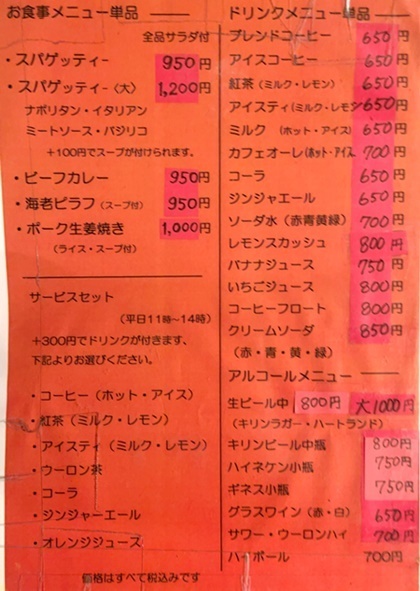 お食事メニュー単品
全品サラダ付
・スパゲッティー 950円
・スパゲッティー〈大〉 1,200円
ナポリタン・イタリアン
ミートソース・バジリコ
+100円でスープが付けられます。
・ビーフカレー 950円
・海老ピラフ（スープ付） 950円
・ポーク生姜焼き 1,000円
（ライス・スープ付）
サービスセット
（平日11時〜14時）
+300円でドリンクが付きます、
下記よりお選びください。
・コーヒー（ホット・アイス）
・紅茶（ミルク・レモン）
・アイスティ（ミルク・レモン）
・ウーロン茶
・コーラ
・ジンジャーエール
・オレンジジュース
価格はすべて税込みです
ドリンクメニュー単品
ブレンドコーヒー 650円
アイスコーヒー 650円
紅茶（ミルク・レモン） 650円
アイスティ（ミルク・レモン 650円
ミルク （ホット・アイス） 650円
カフェオーレ（ホット・アイス 700円
コーラ 650円
ジンジャエール 650円
ソーダ水（赤青黄緑） 700円
レモンスカッシュ 800円
バナナジュース 750円
いちごジュース 800円
コーヒーフロート 800円
クリームソーダ 850円
（赤・青・黄・緑）
アルコールメニュー
生ビール中 800円 大1000円
（キリンラガー・ハートランド）
キリンビール中瓶 800円
ハイネケン小瓶 750円
ギネス小瓶 750円
グラスワイン（赤・白） 650円
サワー・ウーロンハイ 700円
ハイボール 700円